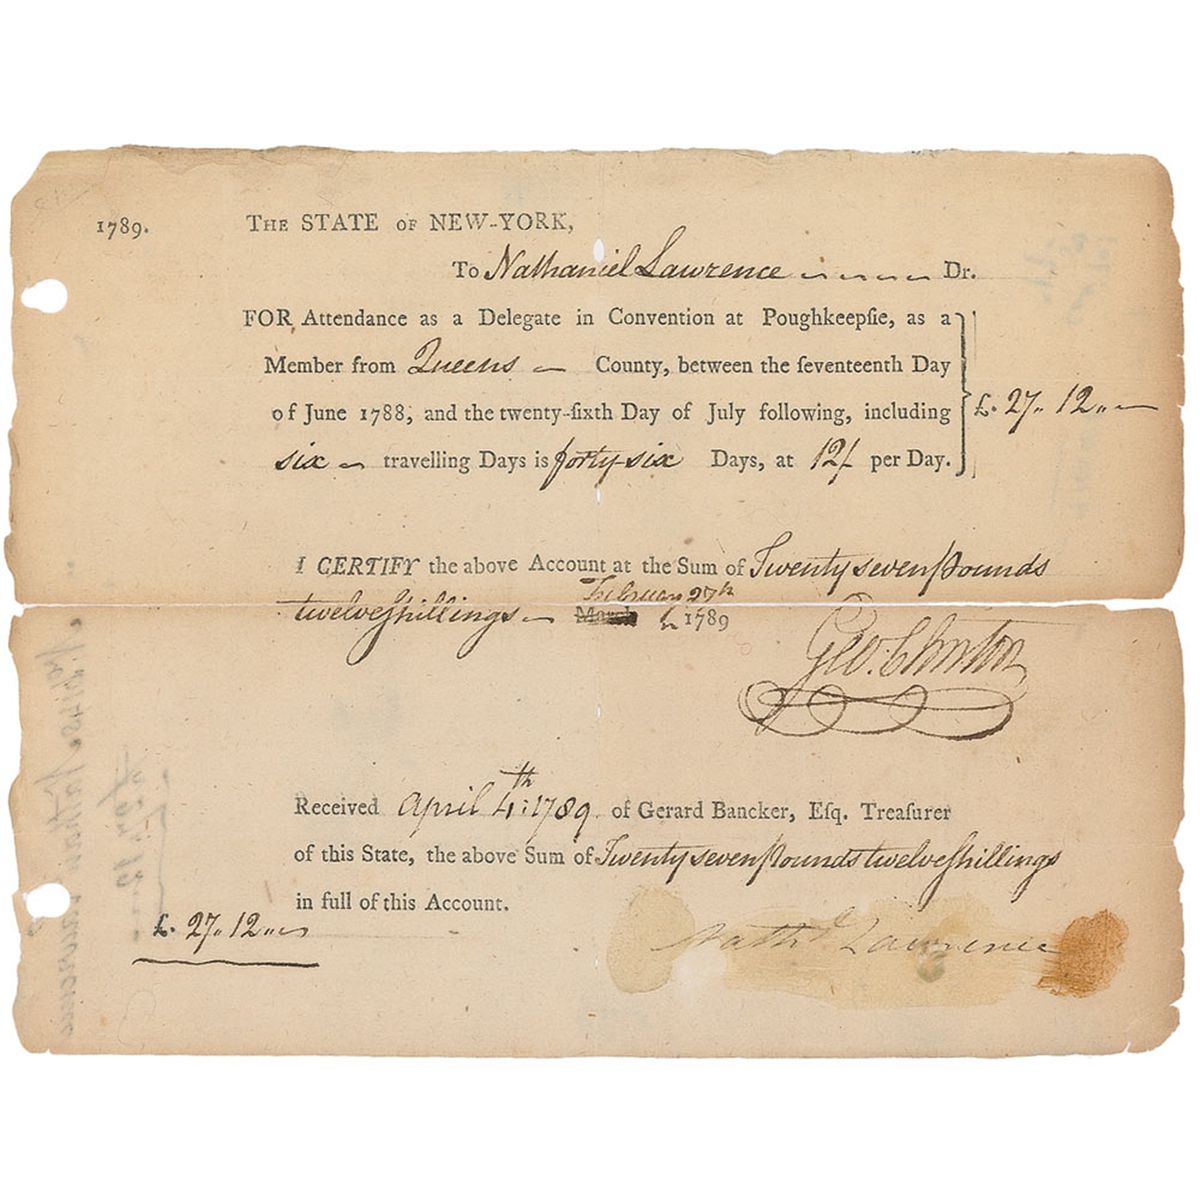 1789. THE STATE OF NEW-YORK,
To Nathaniel Lawrence Dr.
FOR Attendance as a Delegate in Convention at Poughkeepſie, as a
Member from Queens County, between the ſeventeenth Day
of June 1788, and the twenty-ſixth Day of July following, including £. 27.. 12..
six travelling Days is forty-six Days, at 12/ per Day.
I CERTIFY the above Account at the Sum of Twenty seven pounds
February 27th
twelve shillings March 1789
Geo: Clinton
Received April 4th: 1789 of Gerard Bancker, Eſq. Treaſurer
of this State, the above Sum of Twenty seven pounds twelve shillings
in full of this Account.
£. 27.. 12..
Nathl Lawrence